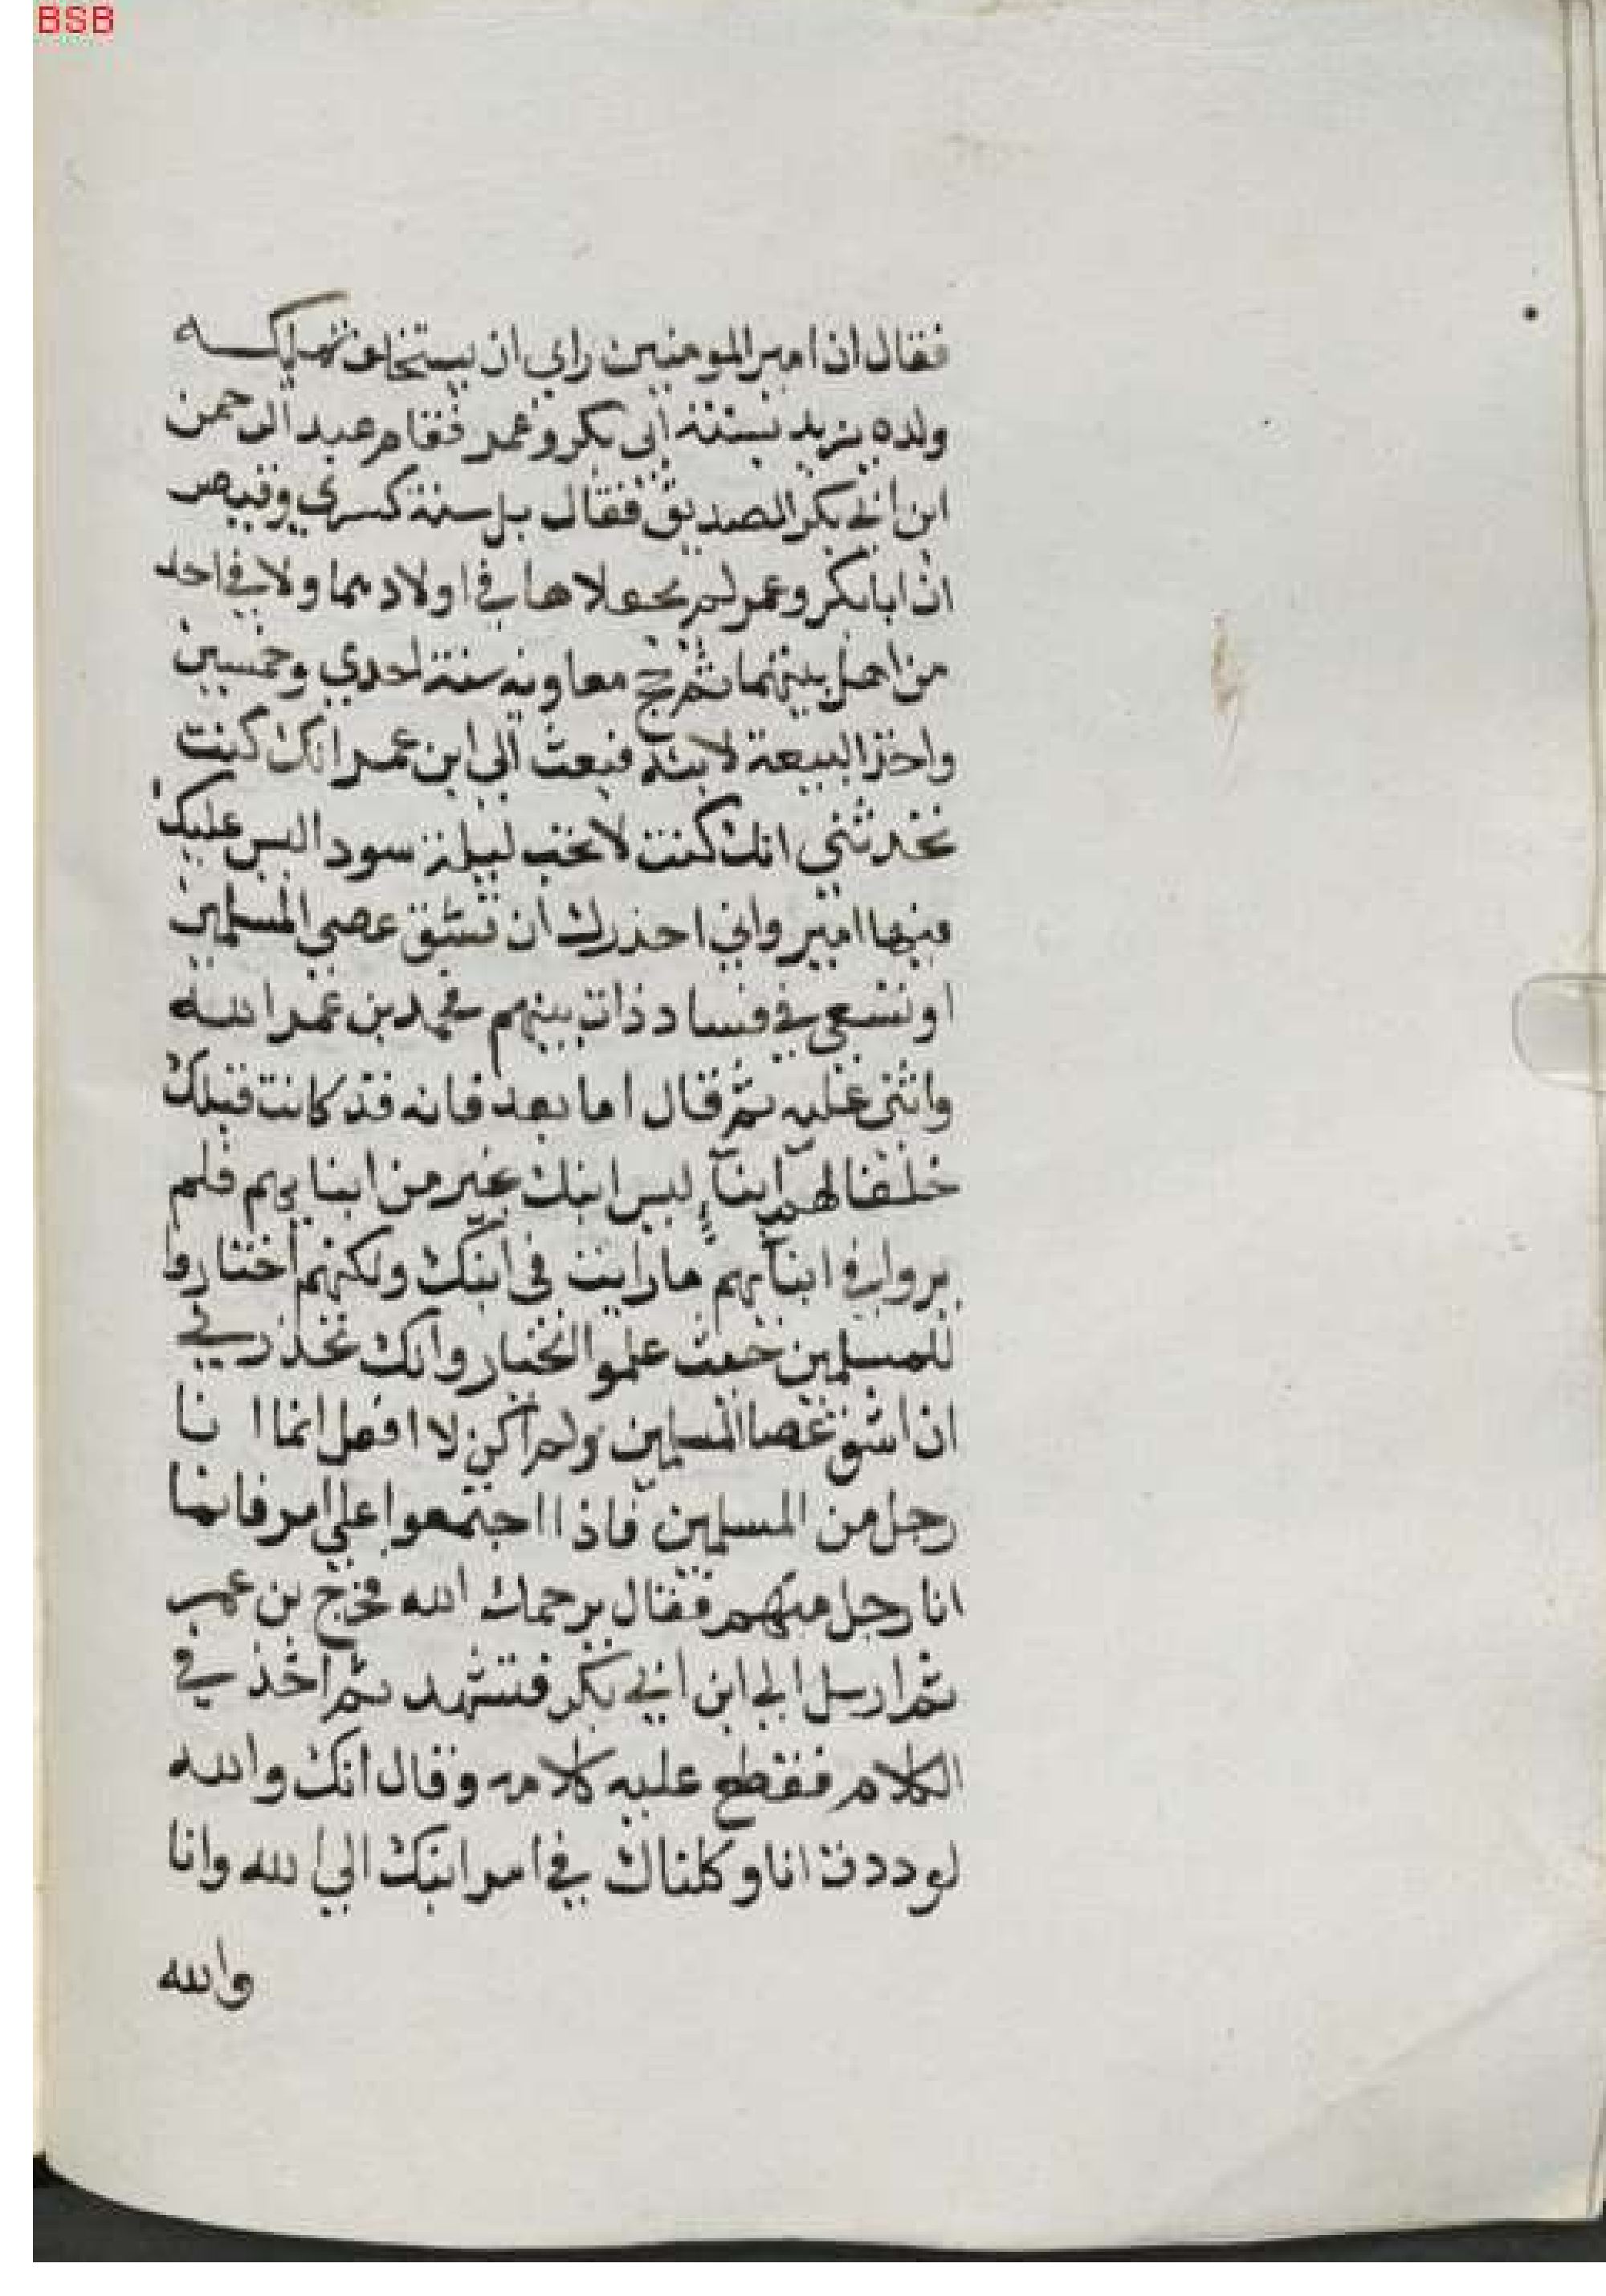 BSB
فقال ان امير المومنين راي ان يستخلف
ولده يزيد بسنة ابى بكر وعمر فقام عبد الرحمن
ابن ابي بكر الصديق فقال بل سنة كسري وقيصر
ان ابا بكر وعمر لم يجعلاها في اولادهما ولا في احد
من اهل بيتهما ثم حج معاوية سنة احدي وخمسين
واخذ البيعة لابنه فبعث الى ابن عمر انك كنت
تحدثني انك كنت لا تحب ليلة سودا ليس عليك
فيها امير واني احذرك ان تشق عصي المسلمين
او تسعي في فساد ذات بينهم فحمد بن عمر الله
واثنى عليه ثم قال اما بعد فانه قد كانت قبلك
خلفا لهم ابنآء ليس ابنك بخير من ابنايهم فلم
يروا في ابنآيهم ما رايت فى ابنك ولكنهم اختاروا
للمسلمين حيث علموا الخيار وانك تحذرني
ان اشق عصا المسلمين ولم اكن لا افعل انما انا
رجل من المسلمين فاذا اجتمعوا علي امر فانما
انا رجل منهم فقال يرحمك الله فخرج بن عمر
ثم ارسل الي ابن ابي بكر فتشهد ثم اخذ في
الكلام فقطع عليه كلامه وقال انك والله
لوددت انا وكلناك في امر ابنك الي الله وانا
والله